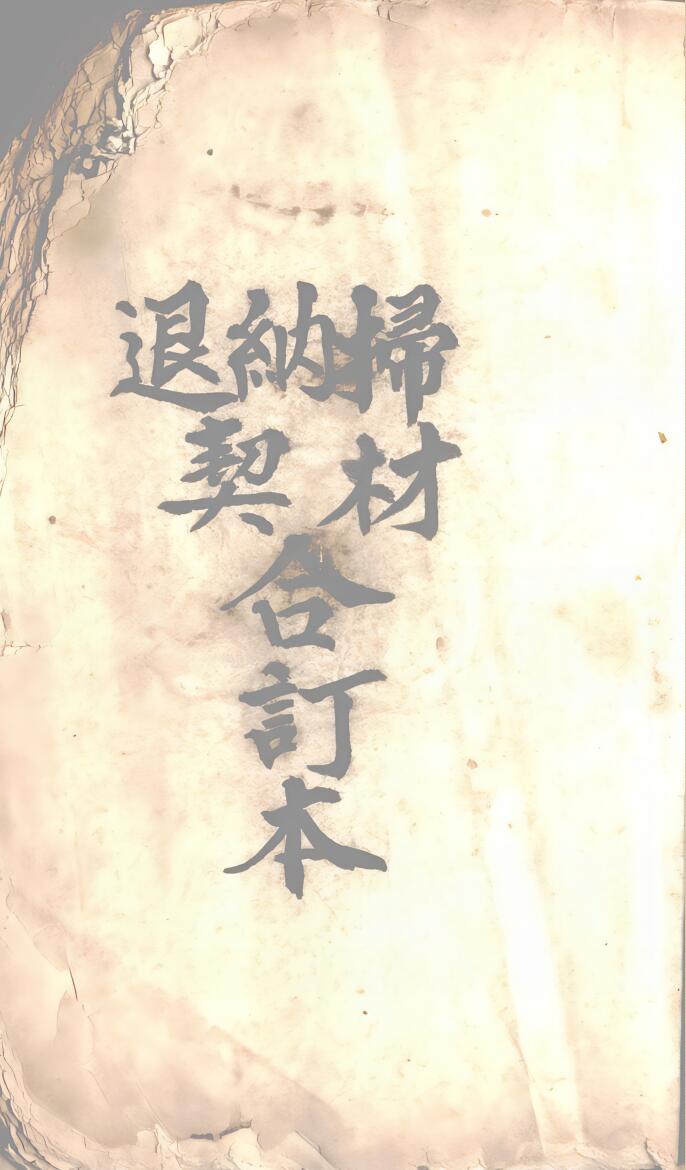 掃納退
材契
合
訂
本